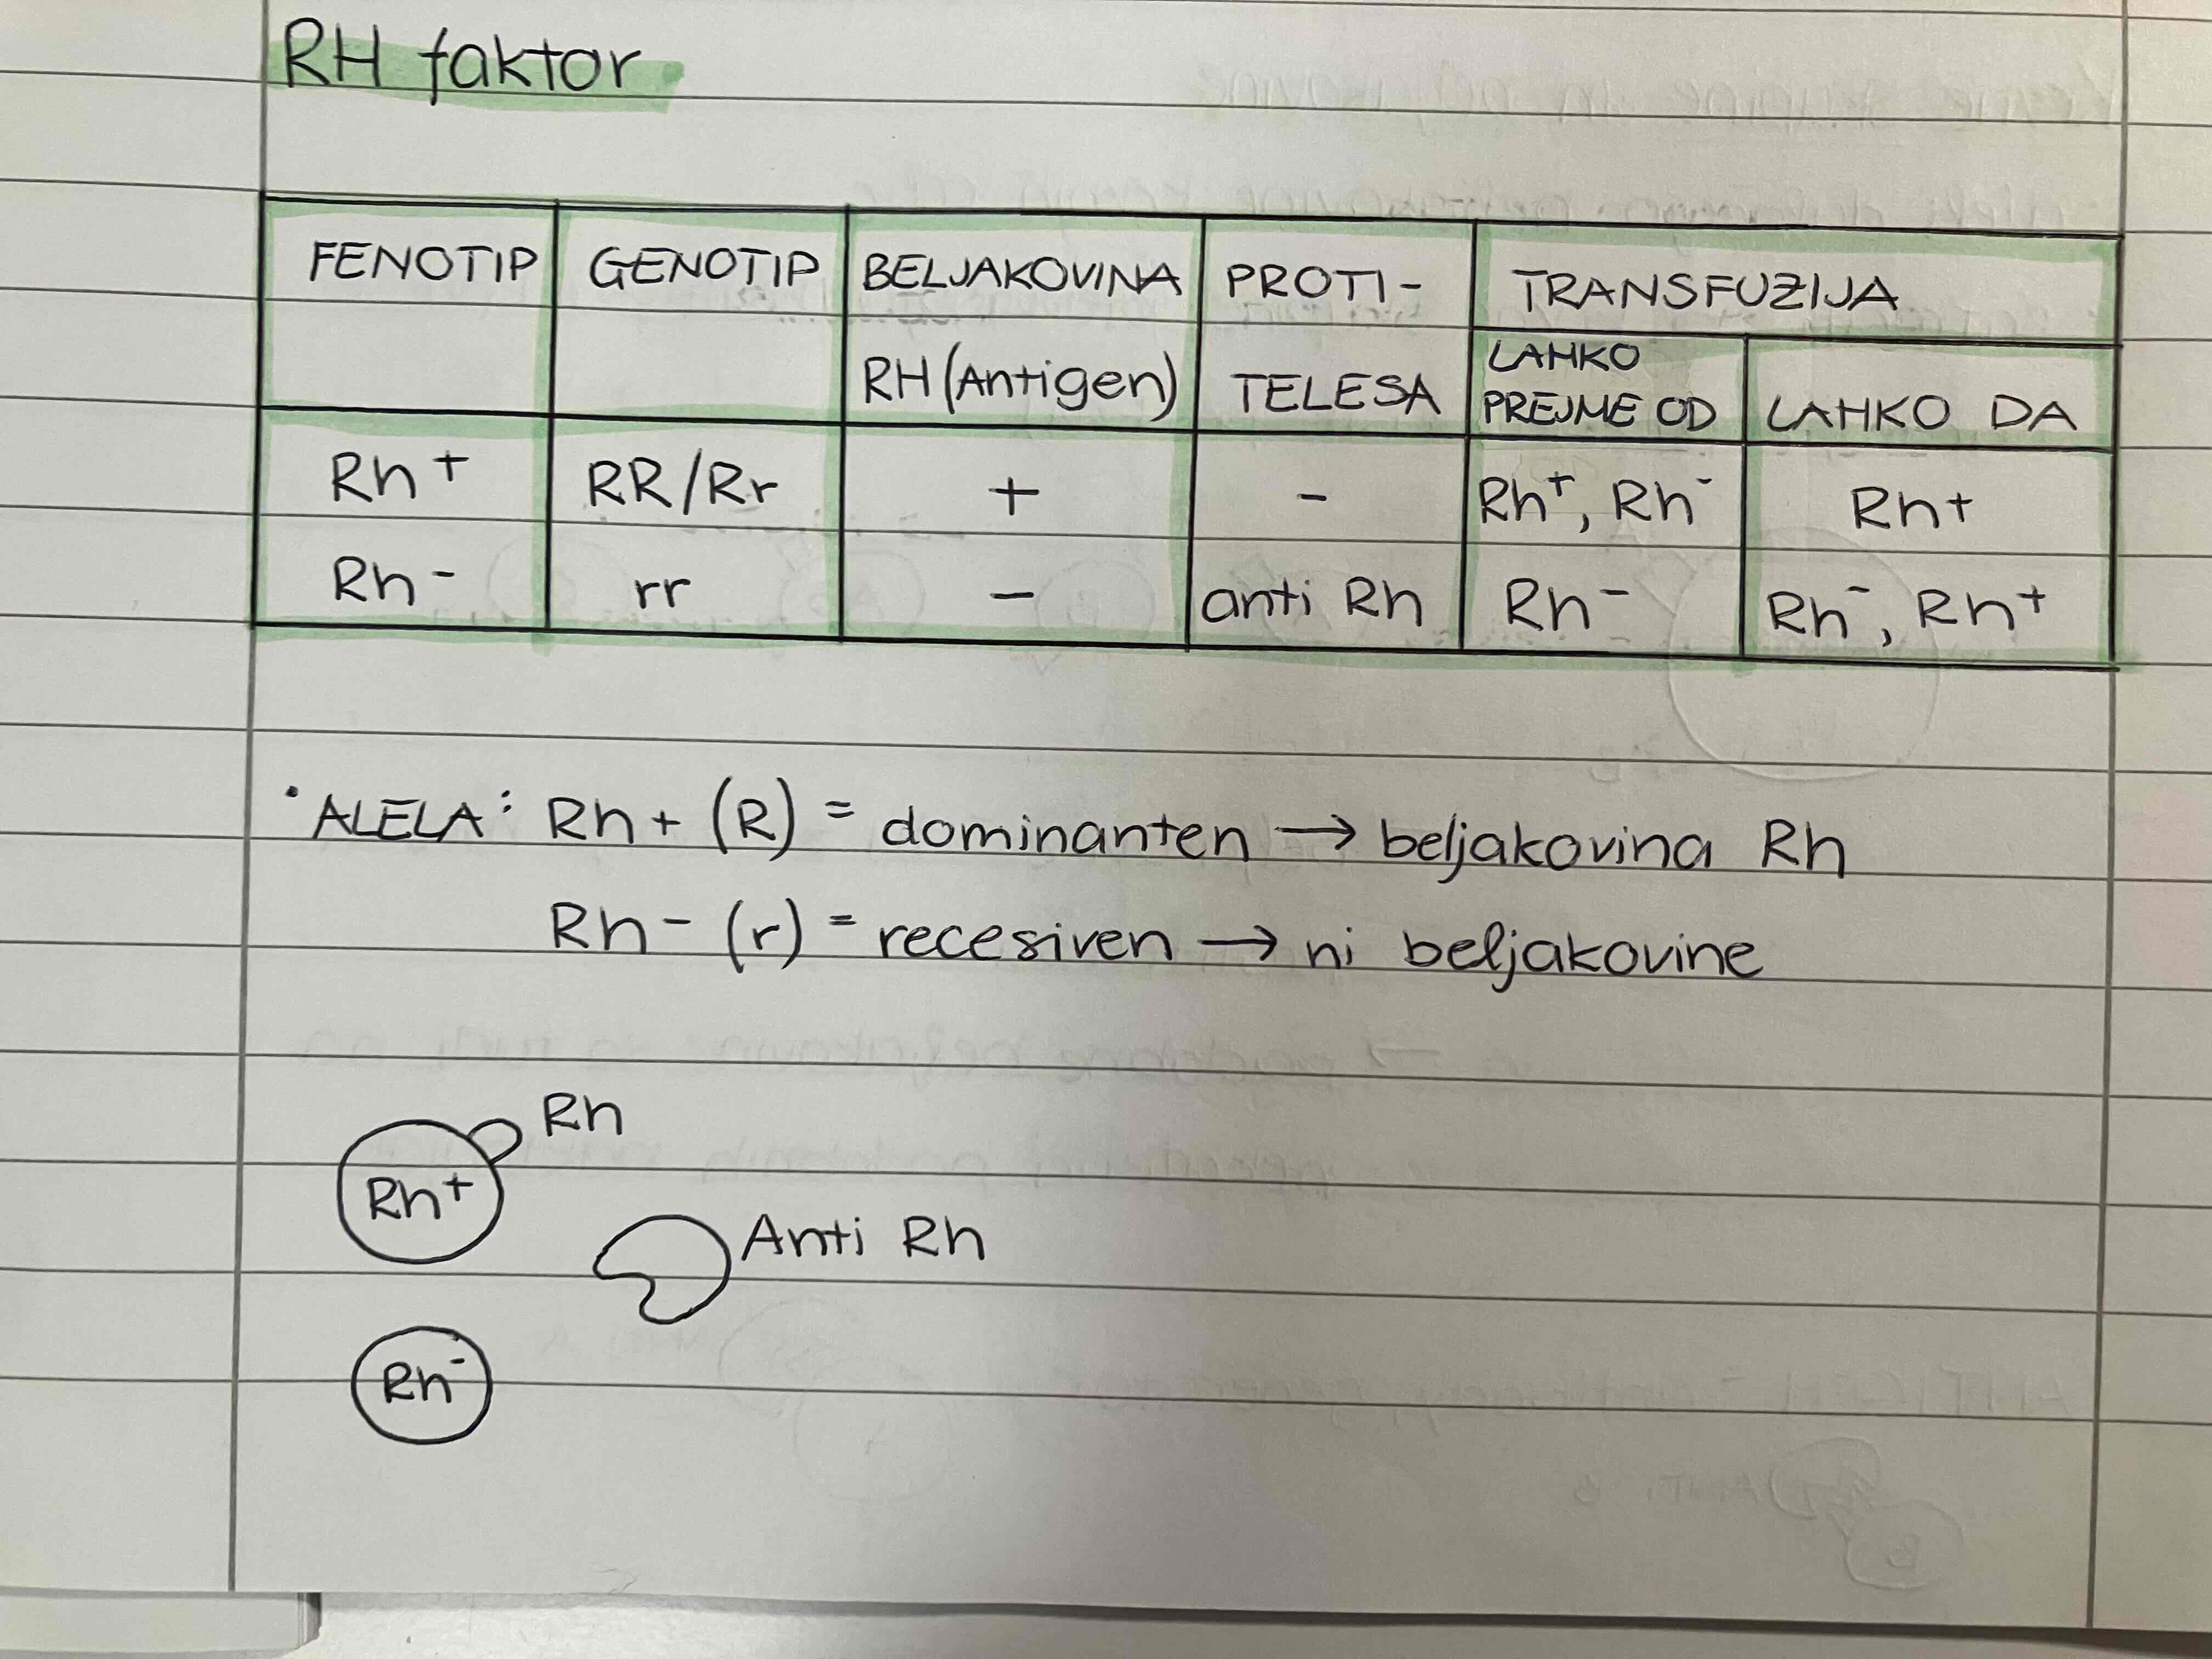 RH faktor
FENOTIP GENOTIP BELJAKOVINA PROTI- TRANSFUZIJA
RH (Antigen) TELESA LAHKO PREJME OD LAHKO DA
Rh+ RR/Rr + - Rh+, Rh- Rh+
Rh- rr - anti Rh Rh- Rh-, Rh+
• ALELA: Rh+ (R) = dominanten → beljakovina Rh
Rh- (r) = recesiven → ni beljakovine
Rh
Rh+ Anti Rh
Rh-